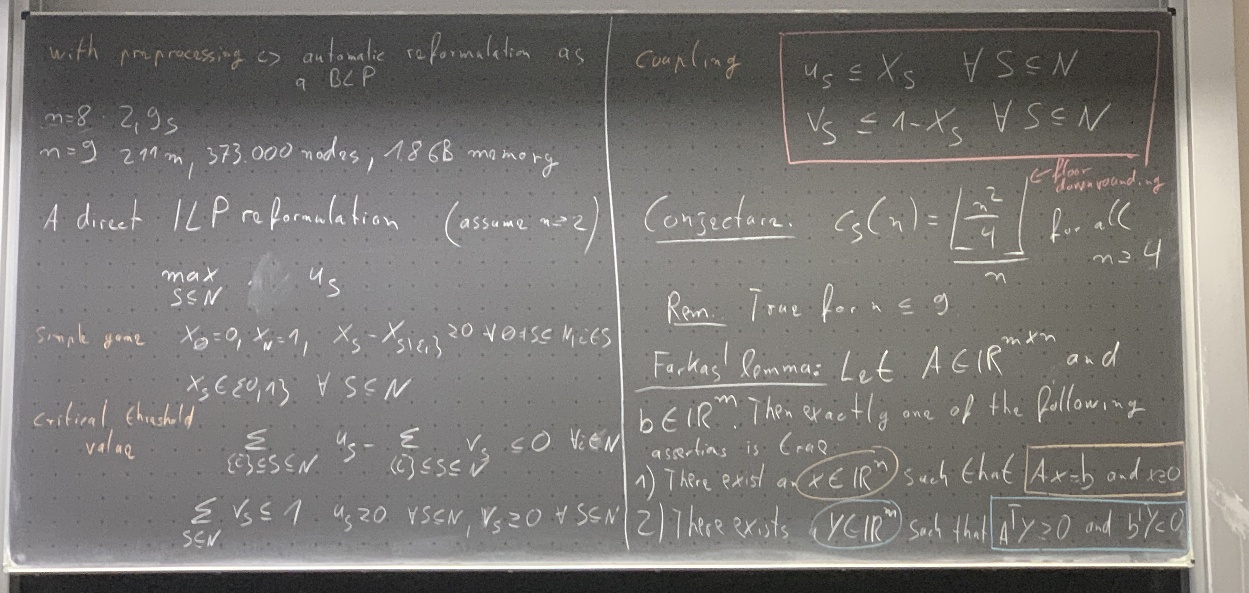 with preprocessing <> automatic reformulation as
a BLP
n=8 2,9s
n=9 211m, 373.000 nodes, 1.8 GB memory
A direct ILP reformulation (assume n≥2)
max u_S
S⊆N
Simple game X_∅=0, X_N=1, X_S - X_{S\{i}} ≥0 ∀ ∅≠S⊆N, i∈S
X_S ∈ {0,1} ∀ S⊆N
critical threshold
value
Σ u_S - Σ v_S ≤0 ∀i∈N
{i}⊆S⊆N {i}⊆S⊆N
Σ v_S ≤ 1 u_S≥0 ∀S⊆N, v_S≥0 ∀ S⊆N
S⊆N
Coupling
u_S ≤ X_S ∀ S⊆N
v_S ≤ 1-X_S ∀ S⊆N
← floor
downrounding
Conjecture: c_S(n) = ⌊n²/4⌋/n for all
n≥4
Rem. True for n ≤ 9
Farkas' lemma: Let A∈ℝ^{m×n} and
b∈ℝ^m. Then exactly one of the following
assertions is true
1) There exist an x∈ℝ^n such that Ax=b and x≥0
2) There exists y∈ℝ^m such that A^T y≥0 and b^T y<0